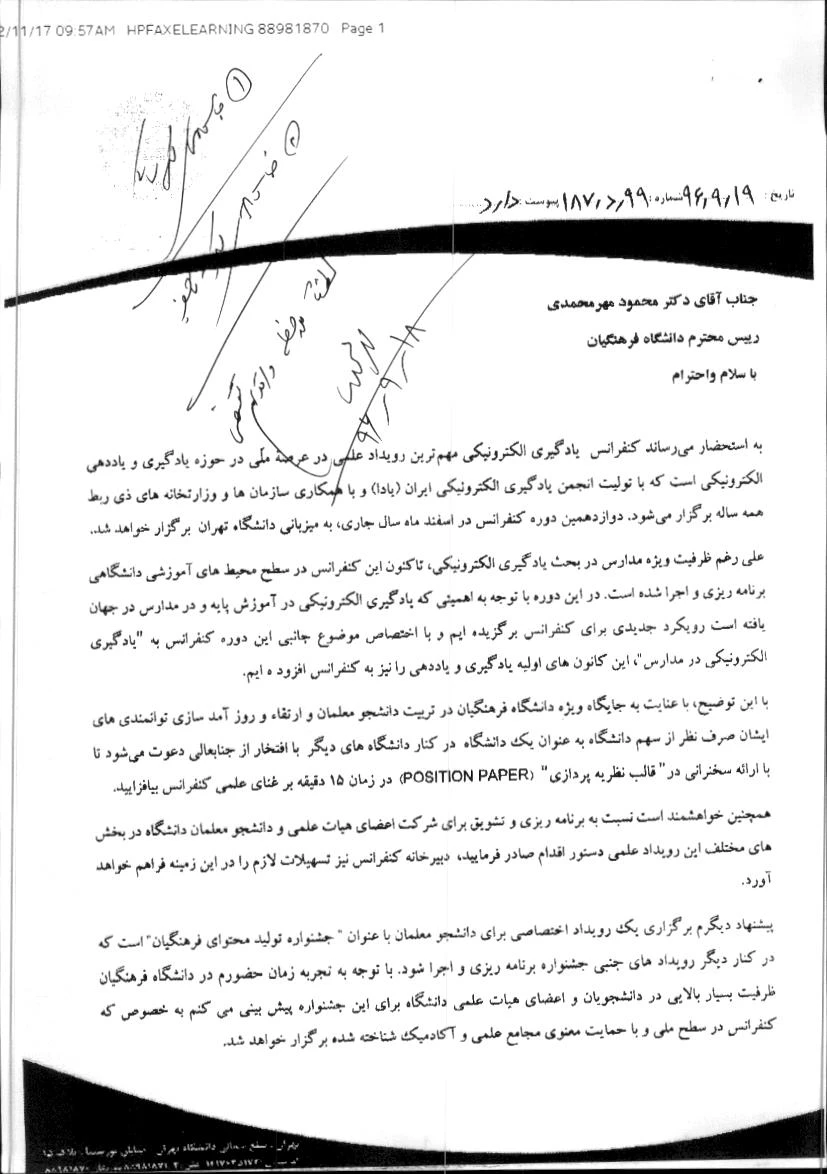 2/11/17 09:57AM HPFAXELEARNING 88981870 Page 1
تاریخ: ۹۶,۹,۱۹ شماره: ۱۸۷,د,۹۹ پیوست: دارد
جناب آقای دکتر محمود مهرمحمدی
رییس محترم دانشگاه فرهنگیان
با سلام واحترام
به استحضار می‌رساند کنفرانس یادگیری الکترونیکی مهم‌ترین رویداد علمی در عرصهٔ ملّی در حوزه یادگیری و یاددهی
الکترونیکی است که با تولیت انجمن یادگیری الکترونیکی ایران (یادا) و با همکاری سازمان ها و وزارتخانه های ذی ربط
همه ساله برگزار می‌شود. دوازدهمین دوره کنفرانس در اسفند ماه سال جاری، به میزبانی دانشگاه تهران برگزار خواهد شد.
علی رغم ظرفیت ویژه مدارس در بحث یادگیری الکترونیکی، تاکنون این کنفرانس در سطح محیط های آموزشی دانشگاهی
برنامه ریزی و اجرا شده است. در این دوره با توجه به اهمیتی که یادگیری الکترونیکی در آموزش پایه و در مدارس در جهان
یافته است رویکرد جدیدی برای کنفرانس برگزیده ایم و با اختصاص موضوع جانبی این دوره کنفرانس به "یادگیری
الکترونیکی در مدارس"، این کانون های اولیه یادگیری و یاددهی را نیز به کنفرانس افزود ه ایم.
با این توضیح، با عنایت به جایگاه ویژه دانشگاه فرهنگیان در تربیت دانشجو معلمان و ارتقاء و روز آمد سازی توانمندی های
ایشان صرف نظر از سهم دانشگاه به عنوان یک دانشگاه در کنار دانشگاه های دیگر با افتخار از جنابعالی دعوت می‌شود تا
با ارائه سخنرانی در" قالب نظریه پردازی" (POSITION PAPER) در زمان ۱۵ دقیقه بر غنای علمی کنفرانس بیافزایید.
همچنین خواهشمند است نسبت به برنامه ریزی و تشویق برای شرکت اعضای هیات علمی و دانشجو معلمان دانشگاه در بخش
های مختلف این رویداد علمی دستور اقدام صادر فرمایید، دبیرخانه کنفرانس نیز تسهیلات لازم را در این زمینه فراهم خواهد
آورد.
پیشنهاد دیگرم برگزاری یک رویداد اختصاصی برای دانشجو معلمان با عنوان " جشنواره تولید محتوای فرهنگیان" است که
در کنار دیگر رویداد های جنبی جشنواره برنامه ریزی و اجرا شود. با توجه به تجربه زمان حضورم در دانشگاه فرهنگیان
ظرفیت بسیار بالایی در دانشجویان و اعضای هیات علمی دانشگاه برای این جشنواره پیش بینی می کنم به خصوص که
کنفرانس در سطح ملی و با حمایت معنوی مجامع علمی و آکادمیک شناخته شده برگزار خواهد شد.